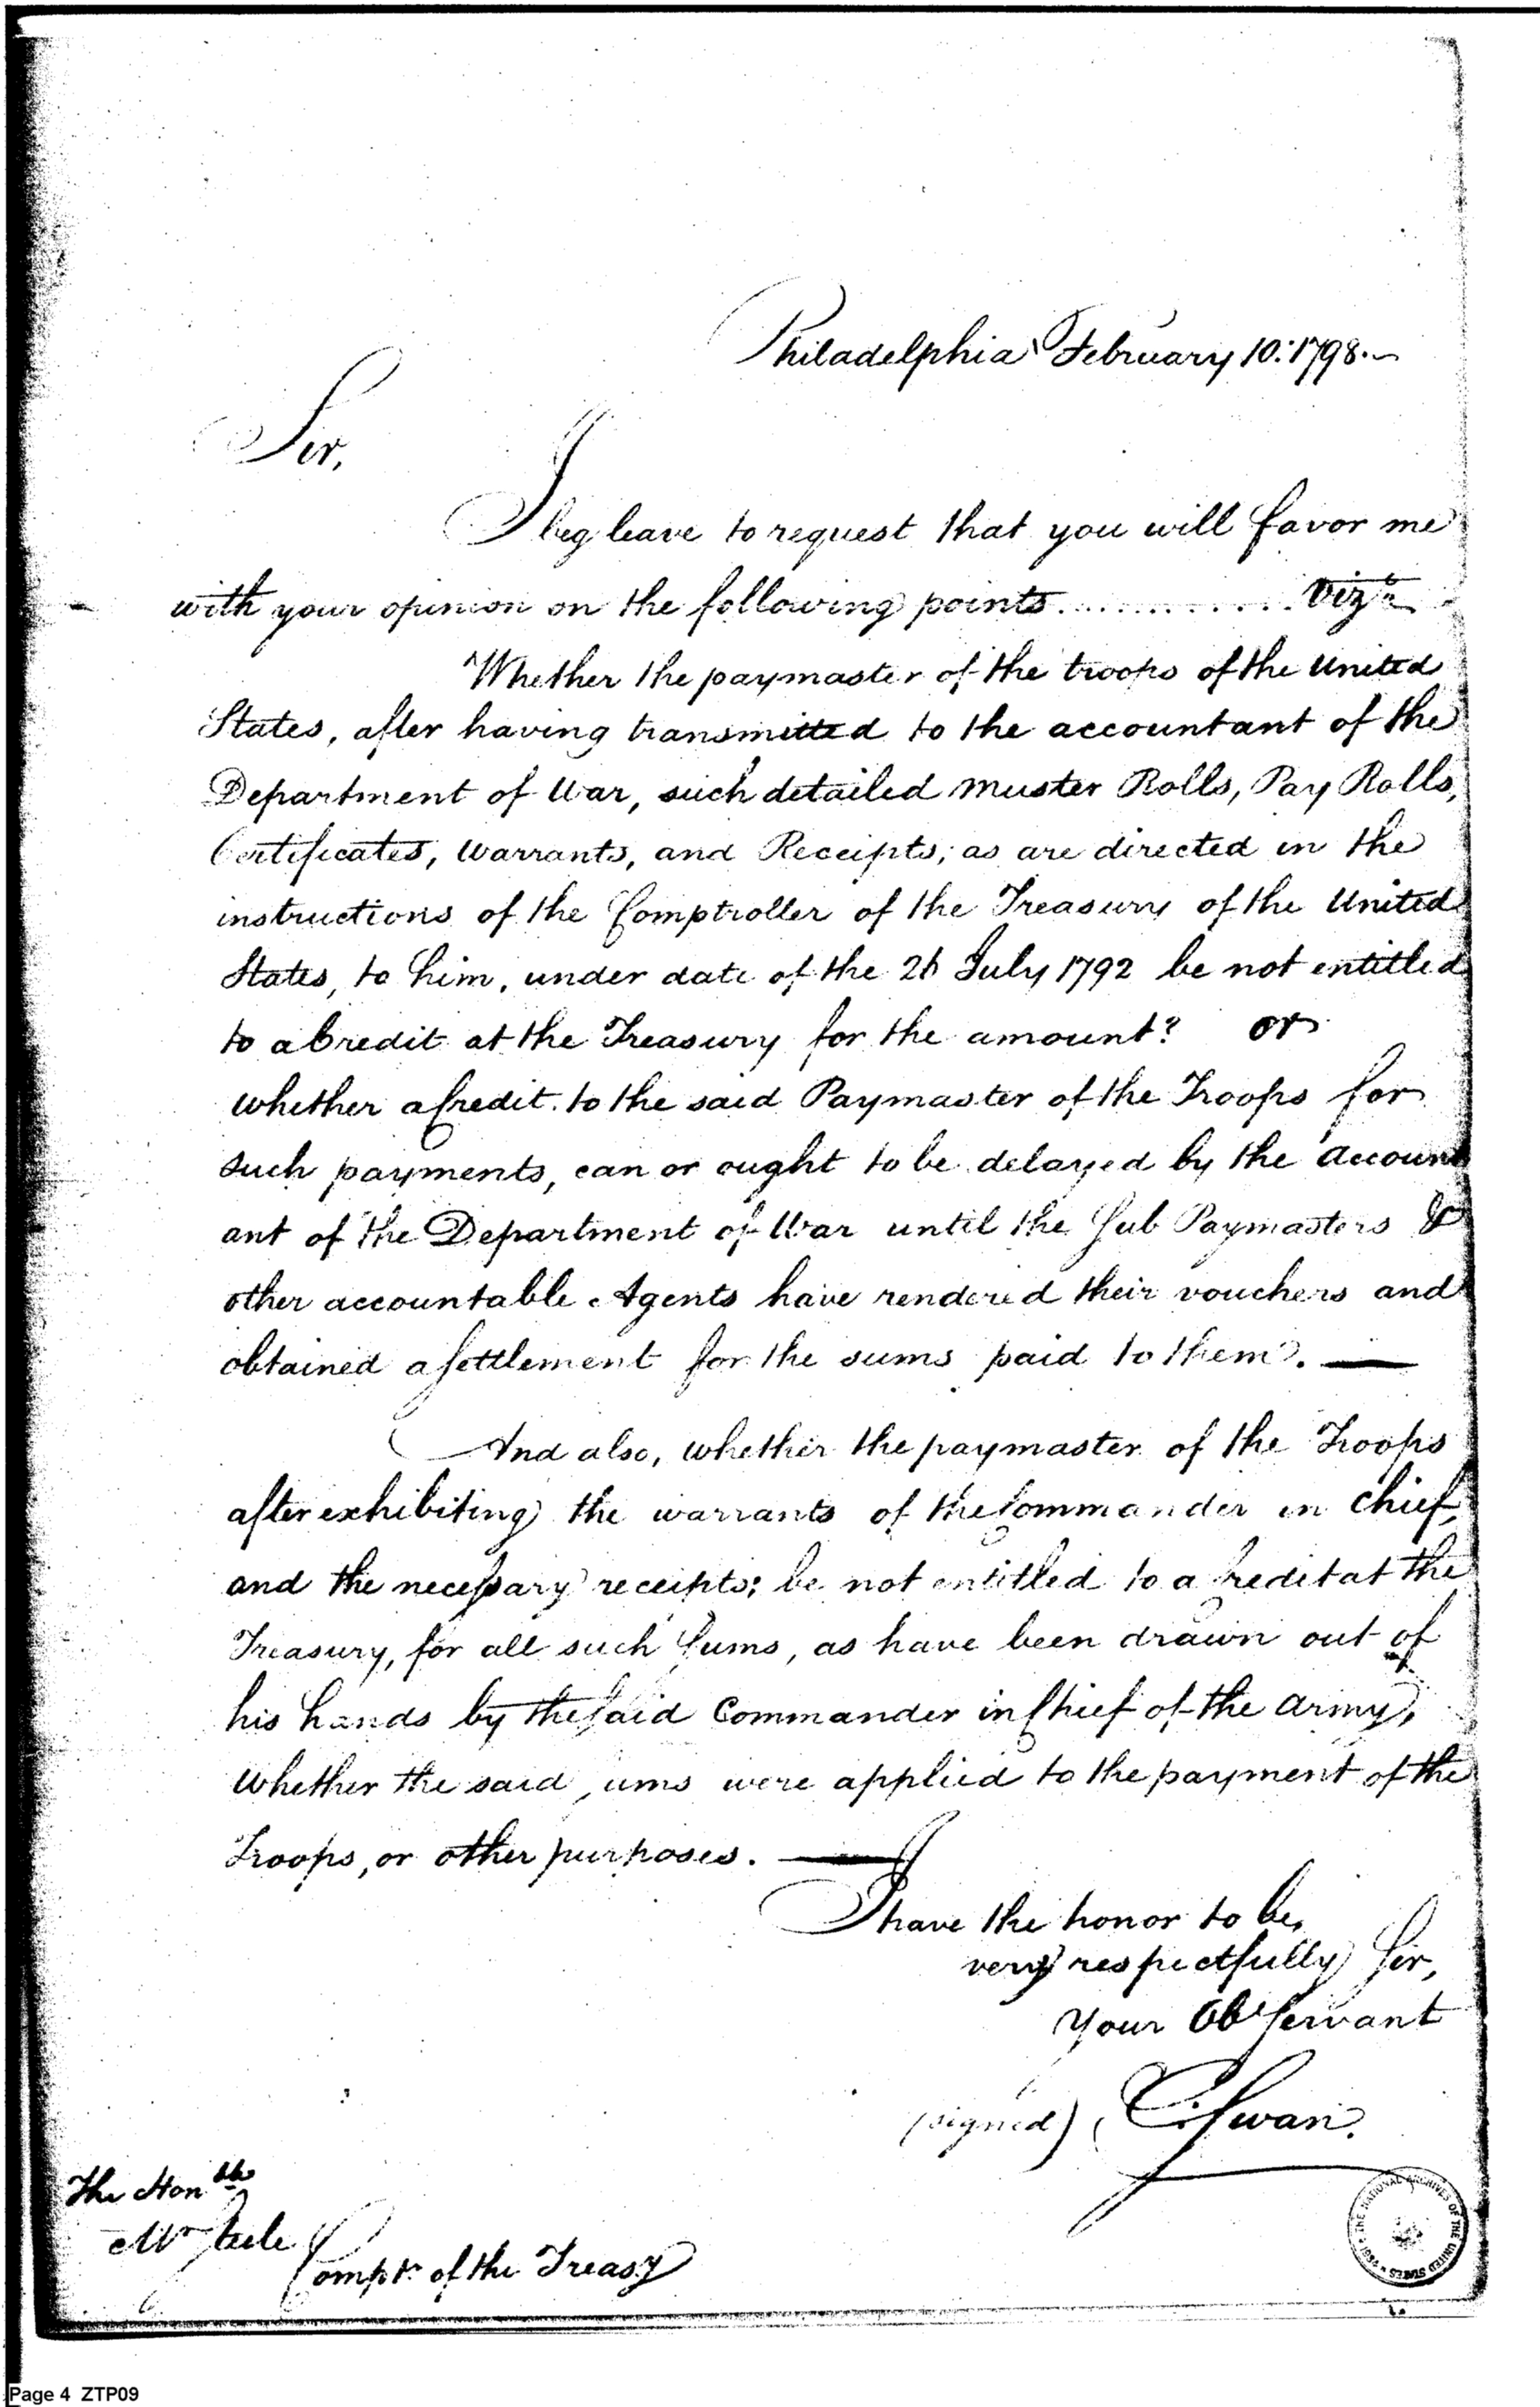 Philadelphia February 10: 1798.
Sir,
I beg leave to request that you will favor me
with your opinion on the following points............. Vizt
"Whether the paymaster of the troops of the United
States, after having transmitted to the accountant of the
Department of War, such detailed muster Rolls, Pay Rolls,
Certificates, Warrants, and Receipts; as are directed in the
instructions of the Comptroller of the Treasury of the United
States, to him, under date of the July 1792 be not entitled
to a Credit at the Treasury for the amount? or
whether a Credit to the said Paymaster of the Troops for
such payments, can or ought to be delayed by the account
ant of the Department of War until the Sub Paymasters &
other accountable Agents have rendered their vouchers and
obtained a Settlement for the sums paid to them?. —
And also, whether the paymaster of the Troops
after exhibiting the warrants of the Commander in chief,
and the necessary receipts; be not entitled to a Credit at the
Treasury, for all such Sums, as have been drawn out of
his hands by the Said Commander in Chief of the Army,
whether the said sums were applied to the payment of the
Troops, or other purposes. —
I have the honor to be,
very respectfully Sir,
Your Obt Servant
(signed) C. Swan.
The Honble
Mr Steele
Comptr of the Treasy
THE NATIONAL ARCHIVES OF THE UNITED STATES • 1934 •
Page 4 ZTP09